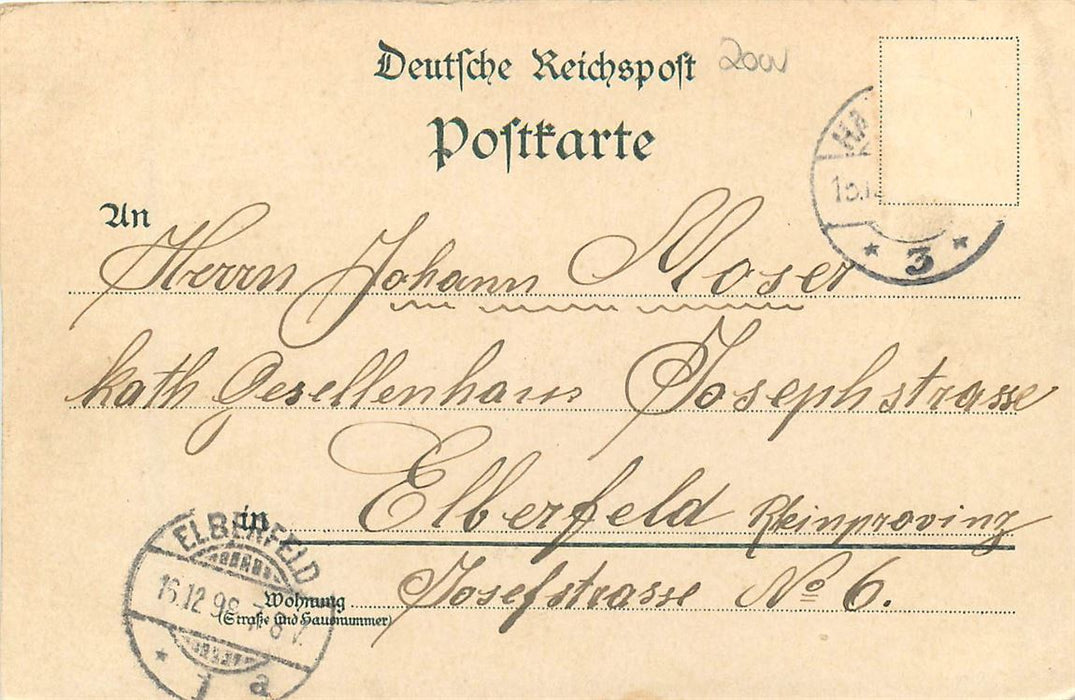 Deutsche Reichspost
Postkarte
An
Herrn Johann Moser
kath Gesellenhaus Josephstrasse
in Elberfeld Rheinprovinz
Wohnung
(Straße und Hausnummer)
Josefstrasse No 6.
3
ELBERFELD
16.12.98
a